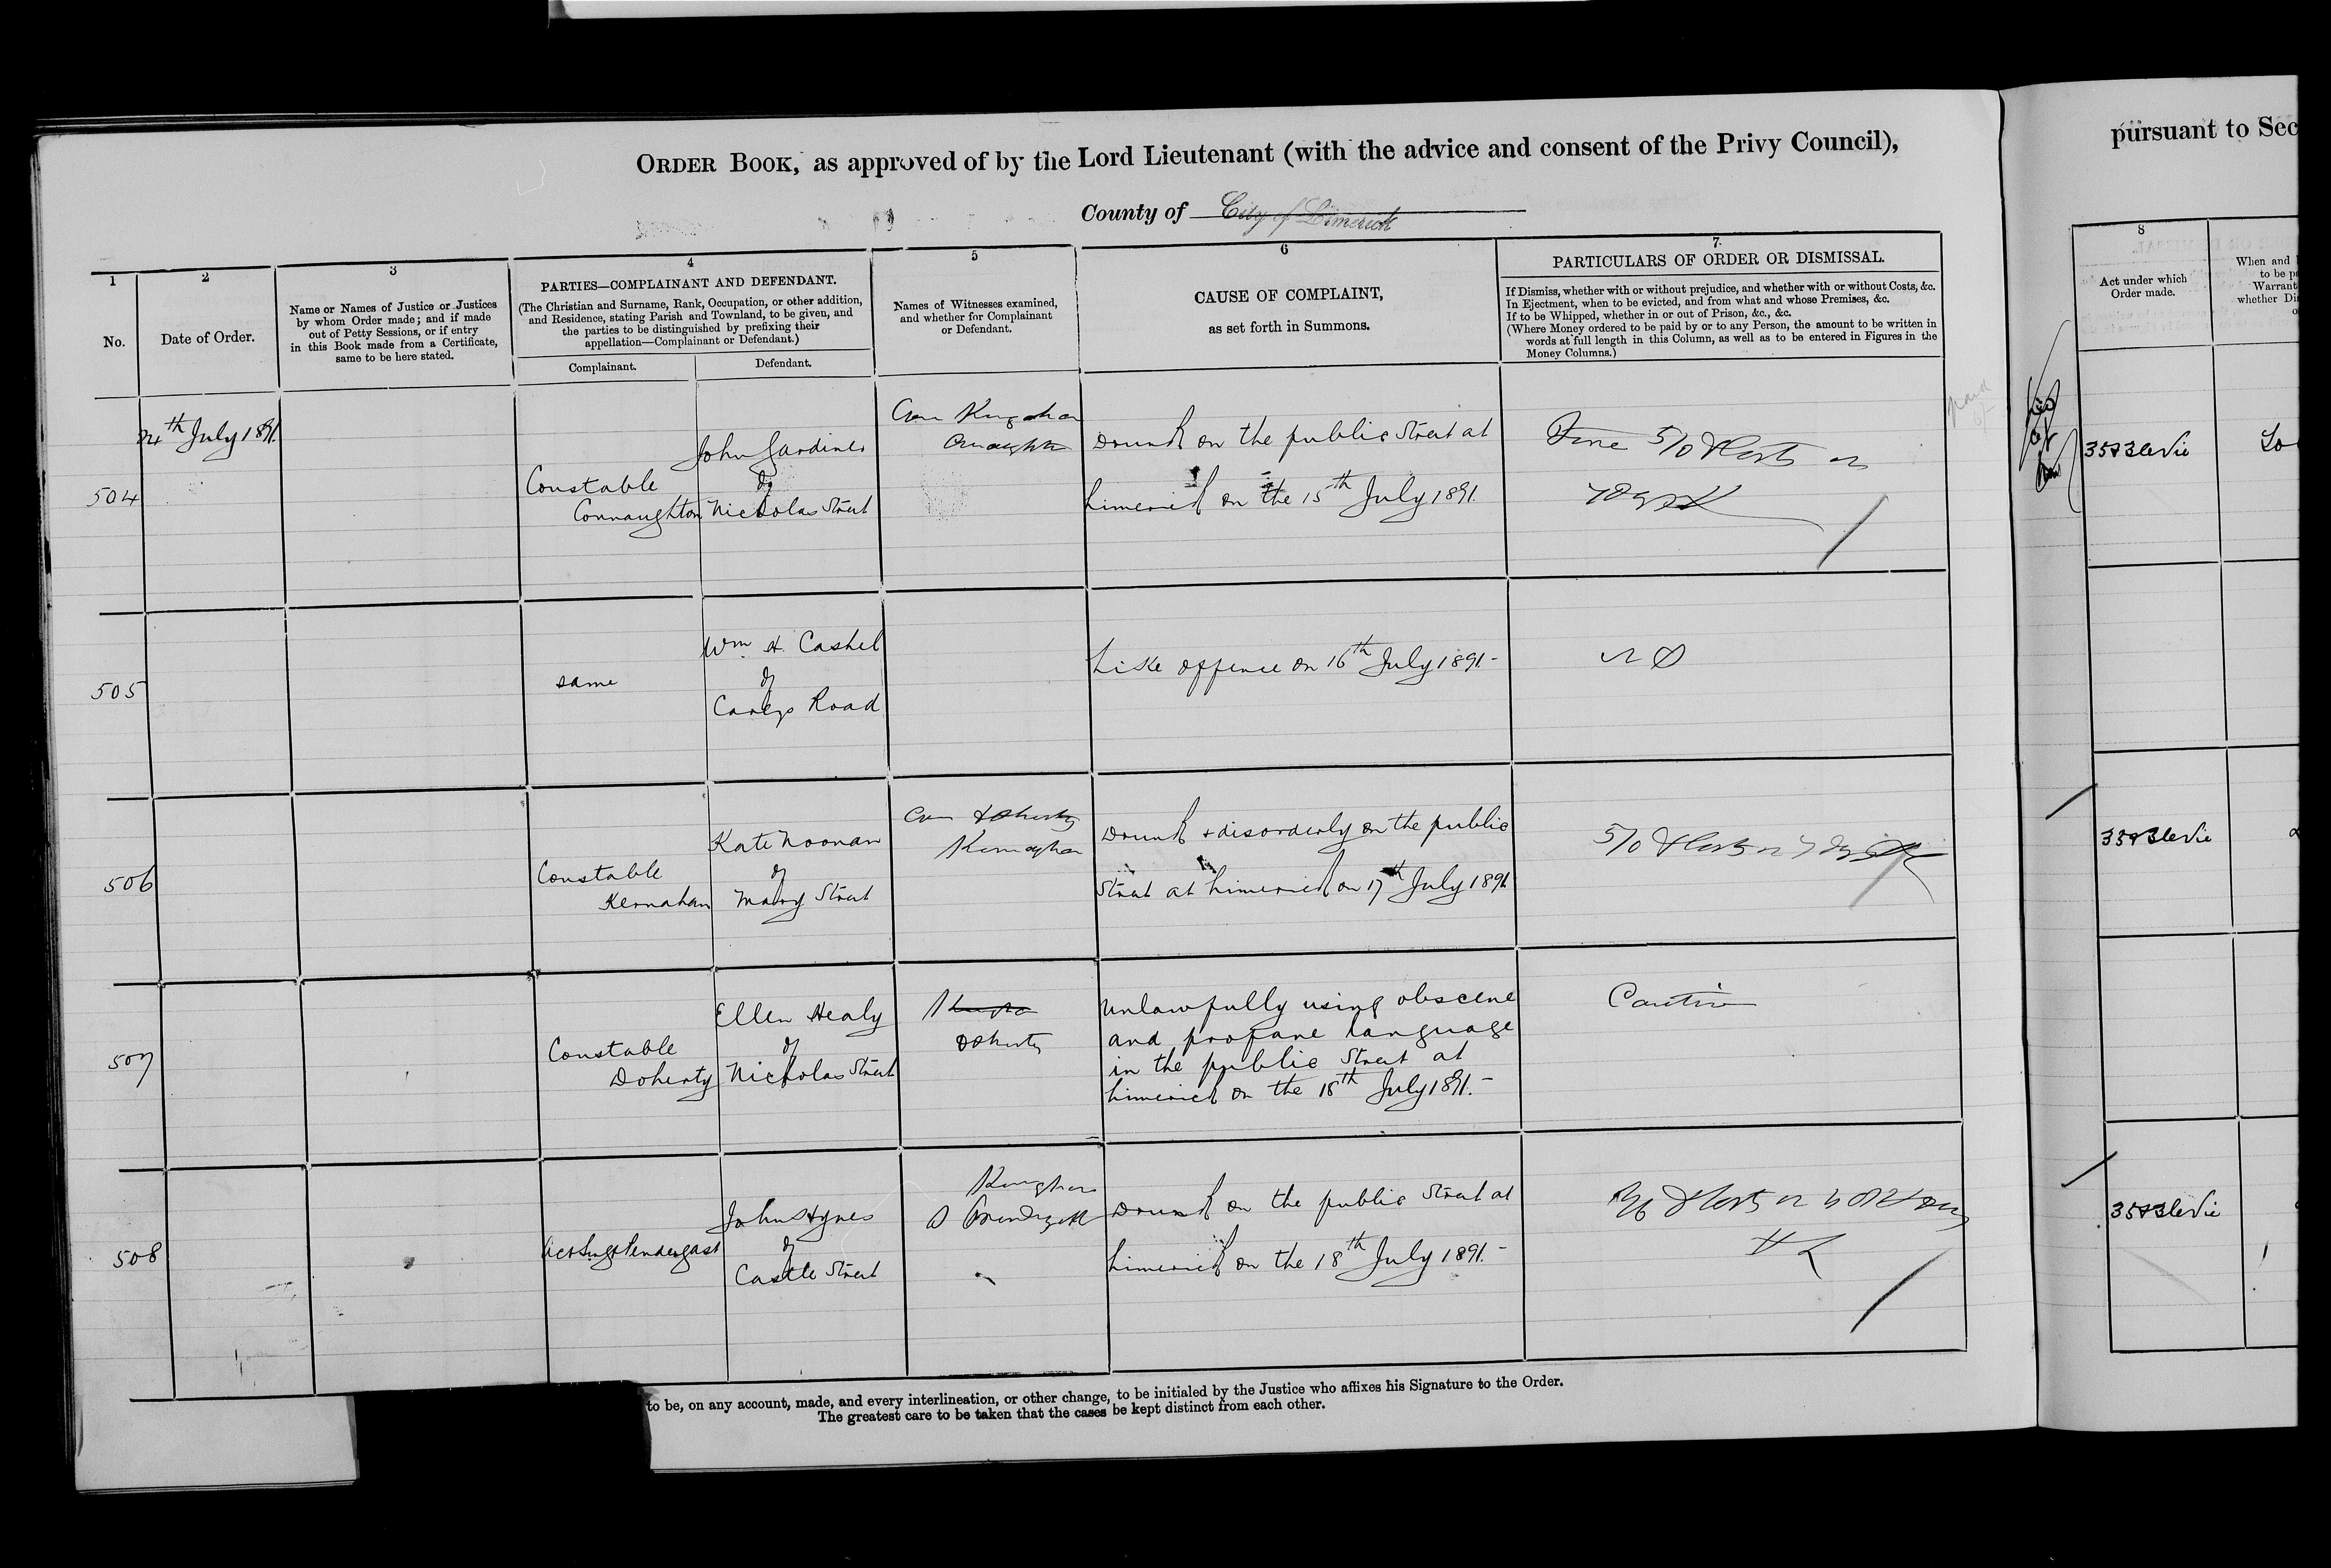 ORDER BOOK, as approved of by the Lord Lieutenant (with the advice and consent of the Privy Council),
pursuant to Sec
County of City of Limerick
1
2
3
4
5
6
7.
8
No.
Date of Order.
Name or Names of Justice or Justices
by whom Order made; and if made
out of Petty Sessions, or if entry
in this Book made from a Certificate,
same to be here stated.
PARTIES—COMPLAINANT AND DEFENDANT.
(The Christian and Surname, Rank, Occupation, or other addition,
and Residence, stating Parish and Townland, to be given, and
the parties to be distinguished by prefixing their
appellation—Complainant or Defendant.)
Complainant.
Defendant.
Names of Witnesses examined,
and whether for Complainant
or Defendant.
CAUSE OF COMPLAINT,
as set forth in Summons.
PARTICULARS OF ORDER OR DISMISSAL.
If Dismiss, whether with or without prejudice, and whether with or without Costs, &c.
In Ejectment, when to be evicted, and from what and whose Premises, &c.
If to be Whipped, whether in or out of Prison, &c., &c.
(Where Money ordered to be paid by or to any Person, the amount to be written in
words at full length in this Column, as well as to be entered in Figures in the
Money Columns.)
Act under which
Order made.
When and
to be p
Warrant
whether Di
504
24th July 1891.
Constable
Connaughton
John Gardiner
of
Nicholas Street
Drunk on the public Street at
Limerick on the 15th July 1891.
Fine 5/0 & Costs or
35&36 Vic
505
same
Wm. H. Cashel
of
Careys Road
Like offence on 16th July 1891.-
506
Constable
Kernahan
Kate Noonan
of
Mary Street
Doherty
Drunk & disorderly on the public
Street at Limerick on 17th July 1891
5/0 & Costs or 7 days
35&36 Vic
507
Constable
Doherty
Ellen Healy
of
Nicholas Street
Doherty
Unlawfully using obscene
and profane language
in the public Street at
Limerick on the 18th July 1891.-
Caution
508
Act Sergt Pendergast
John Hynes
of
Castle Street
Drunk on the public Street at
Limerick on the 18th July 1891.-
& Costs or
35&36 Vic
to be, on any account, made, and every interlineation, or other change, to be initialed by the Justice who affixes his Signature to the Order.
The greatest care to be taken that the cases be kept distinct from each other.